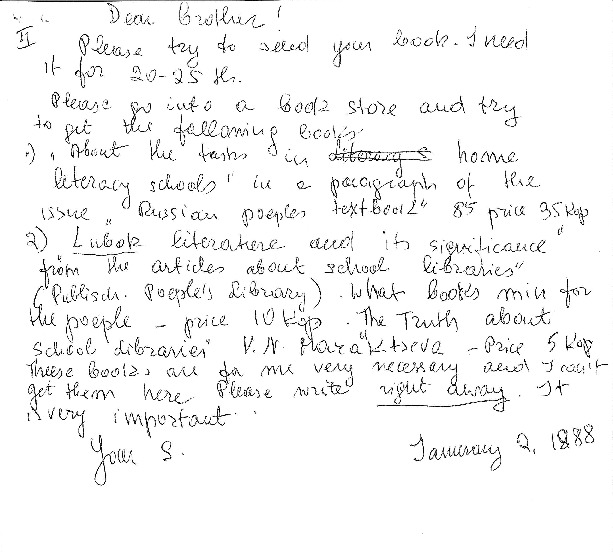 Dear Brother!
II
Please try to send your book. I need
it for 20-25 th.
Please go into a book store and try
to get the following books
1) "About the tasks in literacy s home
literacy schools" in a paragraph of the
issue "Russian poeples textbook" 85 price 35 Kop
2) Lubok literature and its significance"
from the articles about school libraries"
(Publisch. Poeple's Library). What books min for
the poeple - price 10 Kop. The Truth about
School Libraries" V. N. - Price 5 Kop
These books are for me very necessary and I can't
get them here Please write right away. It
is very important.
Your S.
January 2, 1888